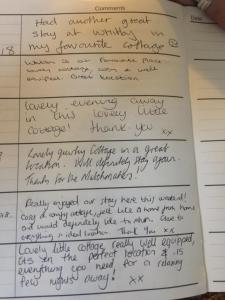 Comments
Date
Had another great
stay at Whitby in
18
my favourite cottage
Which is our favourite place.
lovely cottage, with a well
equiped. Great location
Lovely evening away
in this lovely little
cottage! Thank-you xx
Lovely quirky Cottage in a great
location. Will definitely stay again.
Thanks for the Matchmakers!
Really enjoyed our stay here this weekend!
Cosy & comfy cottage, felt like a home from home
and would definitely like to return. Close to
everything & ideal location. Thank You xx
Lovely little cottage, really well equipped,
its in the perfect location & is
everything you need for a relaxing
few nights away! xx